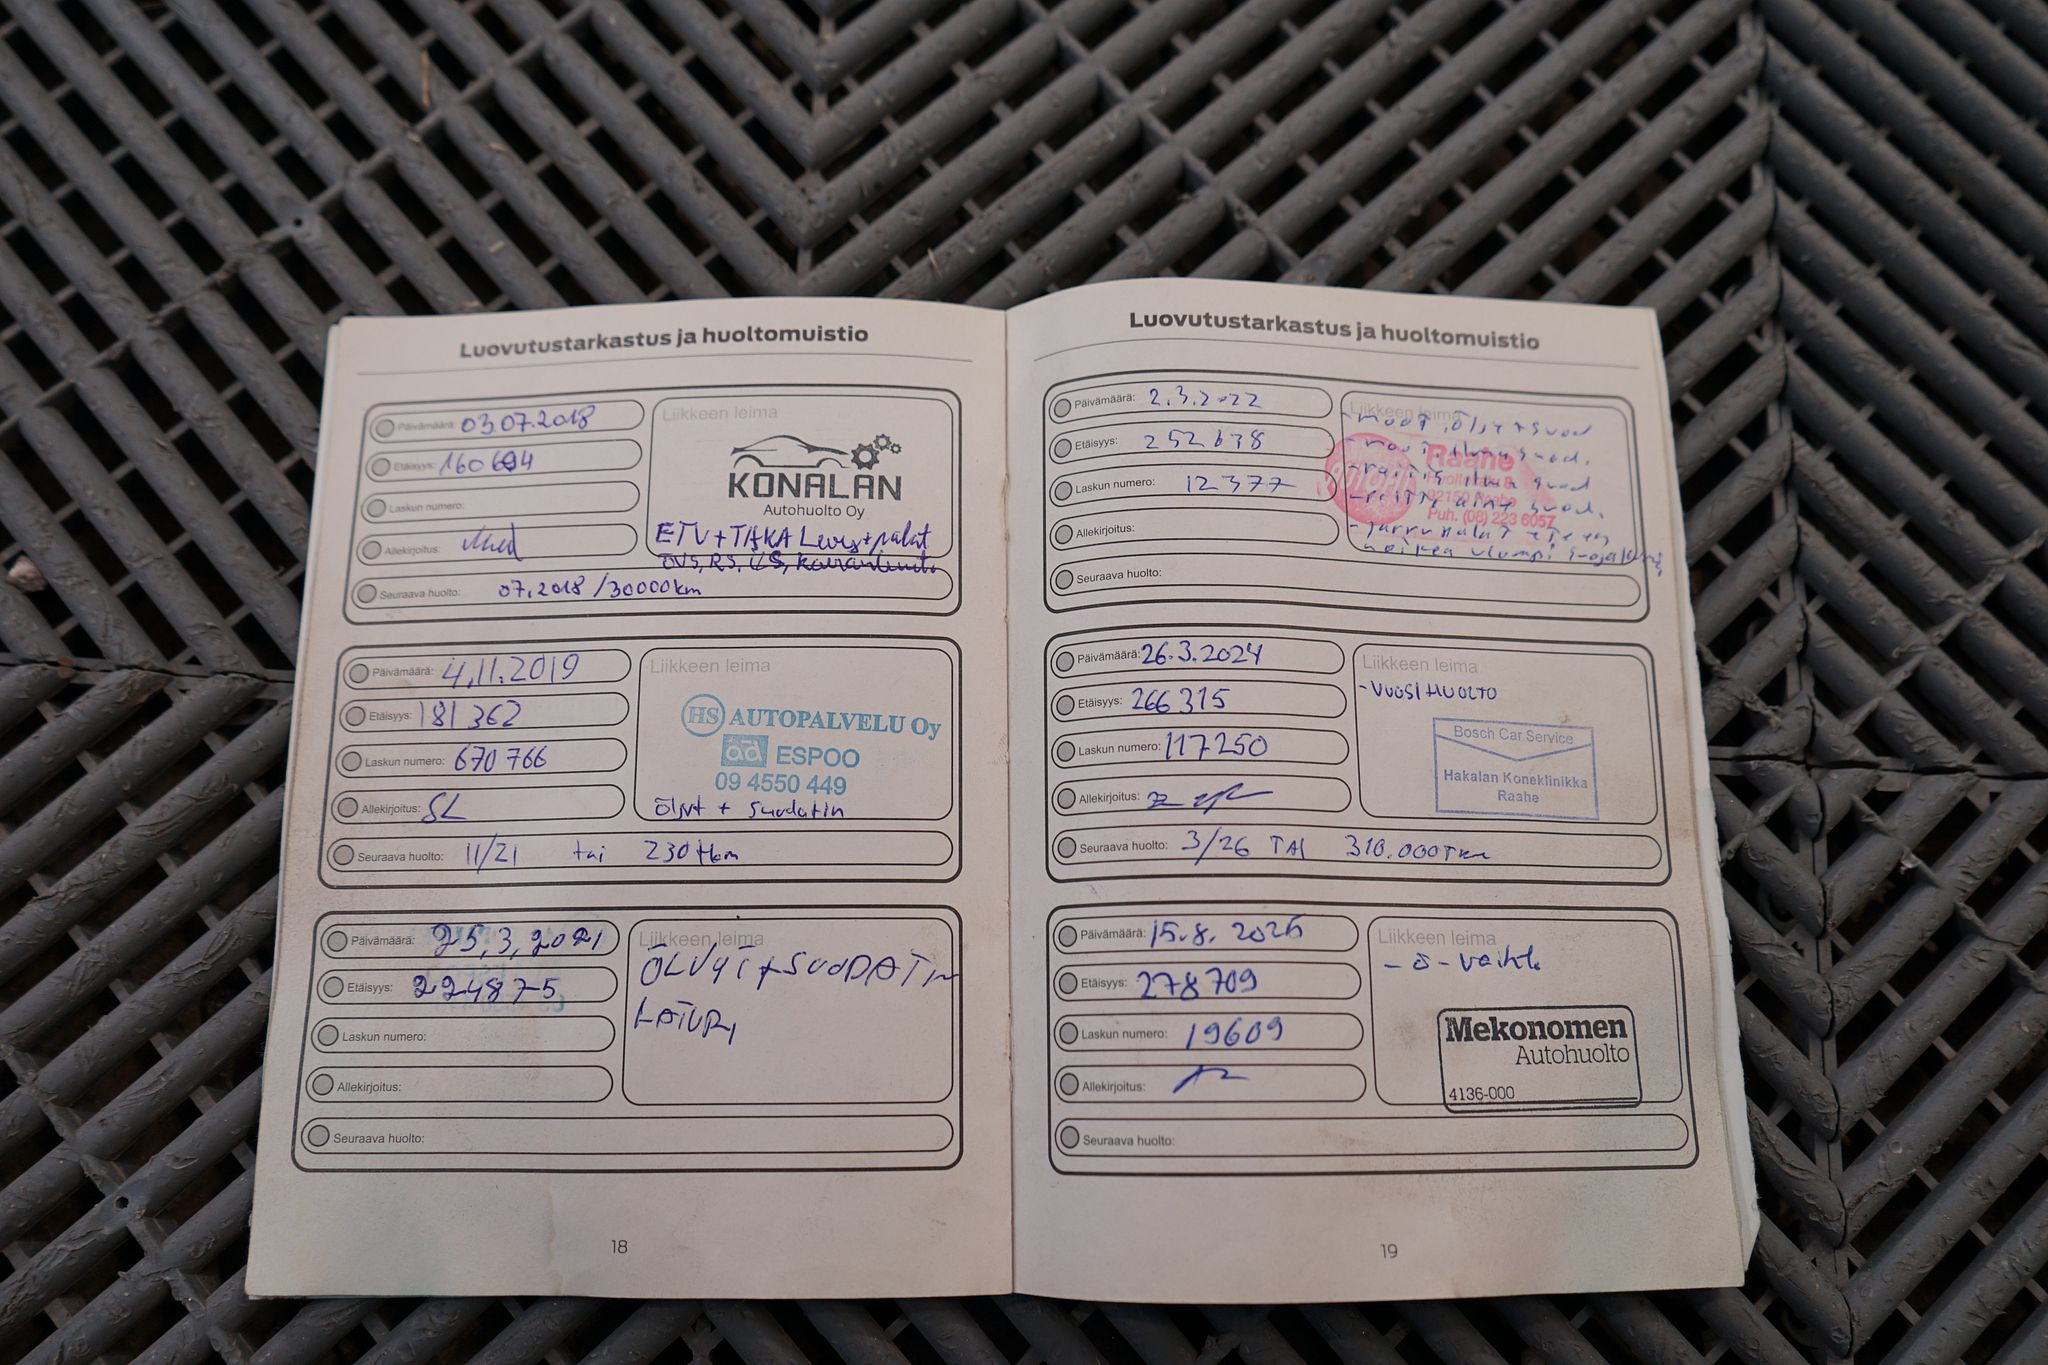 Luovutustarkastus ja huoltomuistio
Päivämäärä: 03.07.2018
Etäisyys: 160694
Laskun numero:
Allekirjoitus:
Liikkeen leima
KONALAN
Autohuolto Oy
ETU+TAKA Levyt+palat
ÖVS, RS,
Seuraava huolto: 07.2018/30000km
Päivämäärä: 4.11.2019
Etäisyys: 181362
Laskun numero: 670766
Allekirjoitus: SL
Liikkeen leima
HS AUTOPALVELU Oy
ad ESPOO
09 4550 449
Öljyt + suodatin
Seuraava huolto: 11/21 tai 230tkm
Päivämäärä: 25,3,2021
Etäisyys: 224875
Laskun numero:
Allekirjoitus:
Liikkeen leima
ÖLVYT+SUODATIN
LATURI
Seuraava huolto:
18
Luovutustarkastus ja huoltomuistio
Päivämäärä: 2.3.2022
Etäisyys: 252638
Laskun numero: 12377
Allekirjoitus:
Liikkeen leima
- moot.öljy+suod
- moot ilmansuod.
- raitis ilman suod
- suod.
- jarrupalat eteen
oikea ulompi
Raahe
92150 Raahe
Puh. (08) 223 6057
Seuraava huolto:
Päivämäärä: 26.3.2024
Etäisyys: 266315
Laskun numero: 117250
Allekirjoitus:
Liikkeen leima
-VUOSIHUOLTO
Bosch Car Service
Hakalan Koneklinikka
Raahe
Seuraava huolto: 3/26 TAI 310.000TKM
Päivämäärä: 15.8. 2025
Etäisyys: 278709
Laskun numero: 19609
Allekirjoitus:
Liikkeen leima
- ö-vaihto
Mekonomen
Autohuolto
4136-000
Seuraava huolto:
19